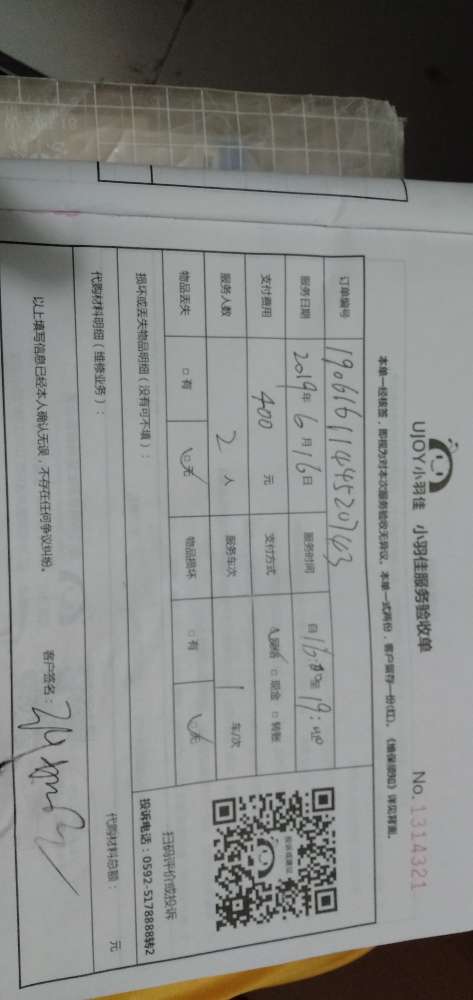 UJOY小羽佳 小羽佳服务验收单
No.1314321
本单一经核签，即视为对本次服务验收无异议。本单一式两份，客户留存一份(红)。《维保须知》详见背面。
订单编号 1906161144520743
服务日期 2019年6月16日 服务时间 自16:00至19:00
支付费用 400 元 支付方式 网络 现金 转账
服务人数 2 人 服务车次 1 车/次
物品丢失 有 无 物品损坏 有 无
投诉或建议
扫码评价或投诉
投诉电话：0592-5178888转2
损坏或丢失物品明细（没有可不填）：
代购材料明细（维修业务）： 代购材料总额： 元
以上填写信息已经本人确认无误，不存在任何争议纠纷。
客户签名：